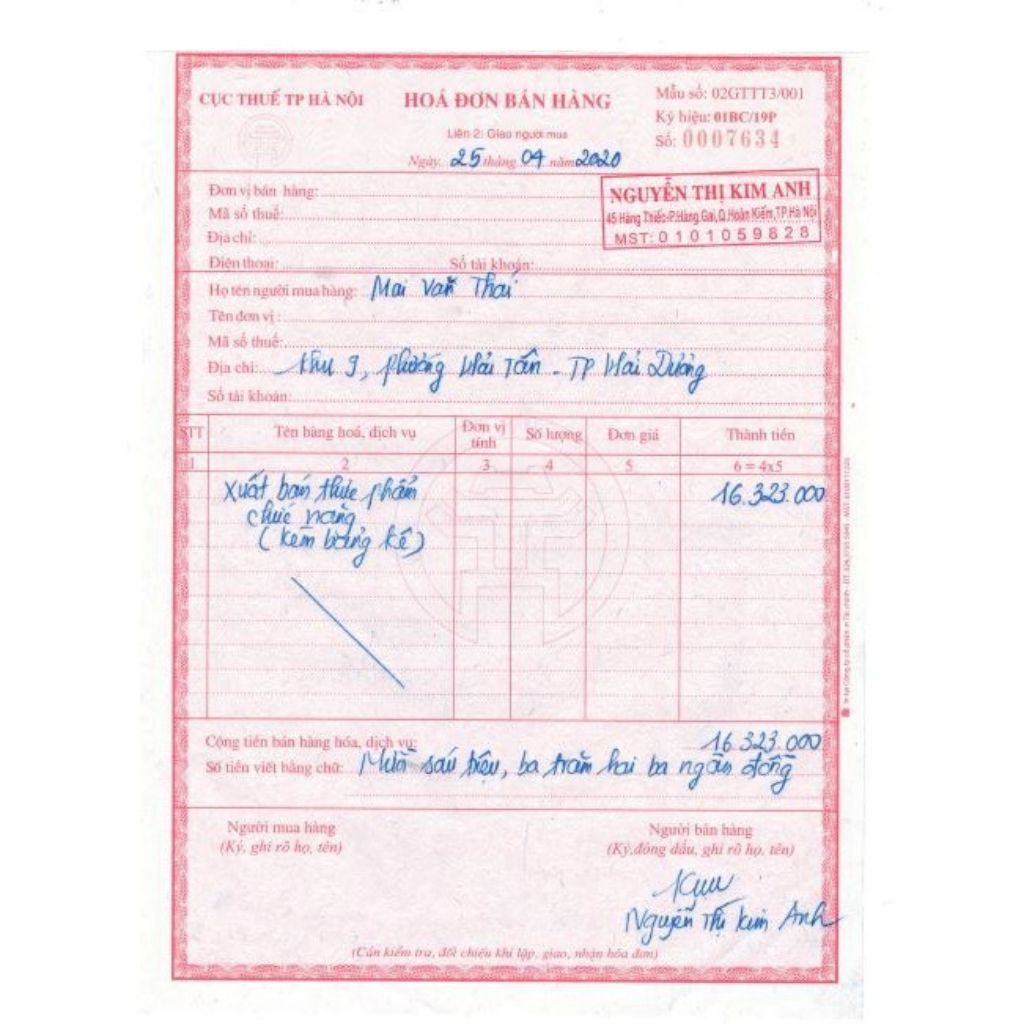 CỤC THUẾ TP HÀ NỘI
HOÁ ĐƠN BÁN HÀNG
Liên 2: Giao người mua
Ngày 25 tháng 04 năm 2020
Mẫu số: 02GTTT3/001
Ký hiệu: 01BC/19P
Số: 0007634
Đơn vị bán hàng:
Mã số thuế:
Địa chỉ:
Điện thoại: Số tài khoản:
NGUYỄN THỊ KIM ANH
45 Hàng Thiếc-P.Hàng Gai,Q.Hoàn Kiếm,TP.Hà Nội
MST: 0101059828
Họ tên người mua hàng: Mai Văn Thái
Tên đơn vị:
Mã số thuế:
Địa chỉ: Khu 9, phường Hải Tân - TP Hải Dương
Số tài khoản:
STT Tên hàng hoá, dịch vụ Đơn vị tính Số lượng Đơn giá Thành tiền
1 2 3 4 5 6 = 4x5
Xuất bán thực phẩm 16.323.000
chức năng
(kèm bảng kê)
Cộng tiền bán hàng hóa, dịch vụ: 16.323.000
Số tiền viết bằng chữ: Mười sáu triệu, ba trăm hai ba ngàn đồng
Người mua hàng
(Ký, ghi rõ họ, tên)
Người bán hàng
(Ký,đóng dấu, ghi rõ họ, tên)
Nguyễn Thị Kim Anh
(Cần kiểm tra, đối chiếu khi lập, giao, nhận hóa đơn)